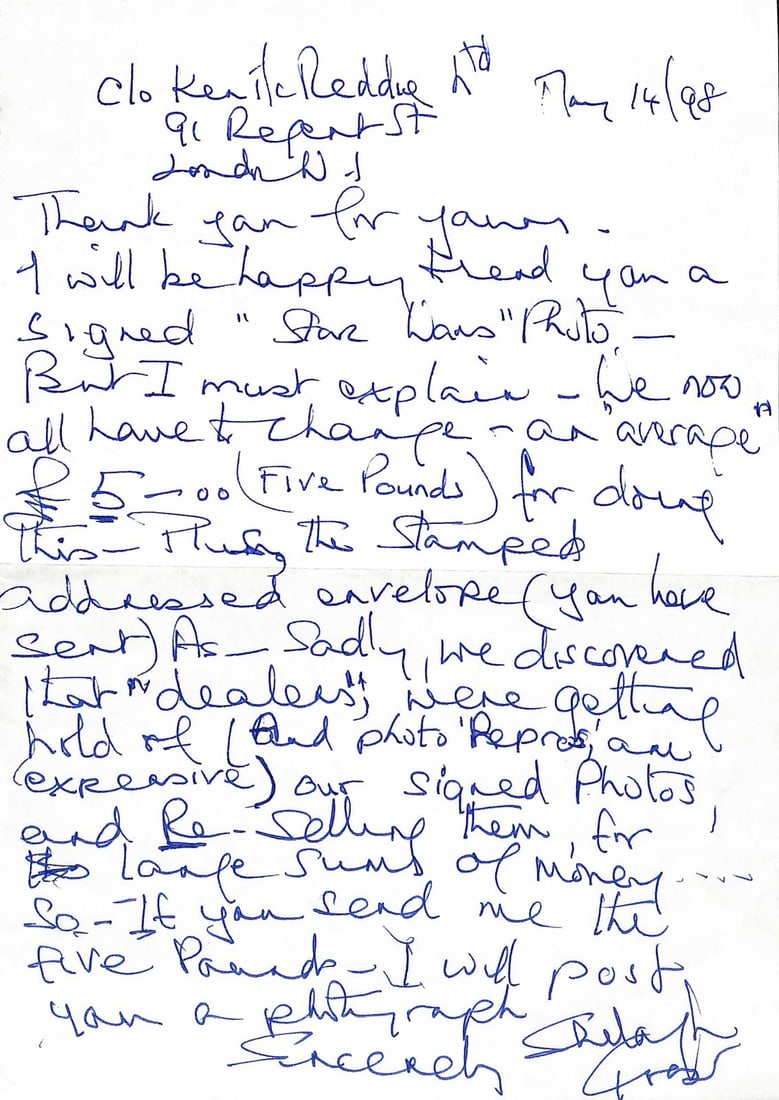 c/o Ken McReddie Ltd May 14/98
91 Regent St
London W.1
Thank you for yours.
I will be happy to send you a
signed "Star Wars" Photo —
But I must explain – We now
all have to charge – an "average"
£5–00 (Five Pounds) for doing
this – Plus, the stamped
addressed envelope (you have
sent) As – Sadly, we discovered
that "dealers", were getting
hold of (And photo 'Repros', are
expensive) our signed Photos
and Re-Selling them, for
large sums of money....
So – If you send me the
five Pounds – I will post
you a photograph
Sincerely Shelagh
Fraser